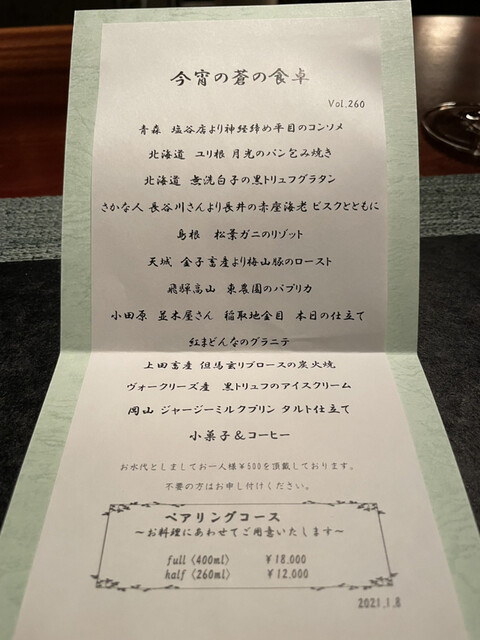 今宵の蒼の食卓
Vol.260
青森 塩谷店より神経締め平目のコンソメ
北海道 ユリ根 月光のパン包み焼き
北海道 無洗白子の黒トリュフグラタン
さかな人 長谷川さんより長井の赤座海老 ビスクとともに
島根 松葉ガニのリゾット
天城 金子畜産より梅山豚のロースト
飛騨高山 東農園のパプリカ
小田原 並木屋さん 稲取地金目 本日の仕立て
紅まどんなのグラニテ
上田畜産 但馬玄リブロースの炭火焼
ヴォークリーズ産 黒トリュフのアイスクリーム
岡山 ジャージーミルクプリン タルト仕立て
小菓子&コーヒー
お水代としましてお一人様¥500を頂戴しております。
不要の方はお申し付けください。
ペアリングコース
~お料理にあわせてご用意いたします~
full (400ml) ¥18,000
half (260ml) ¥12,000
2021.1.8